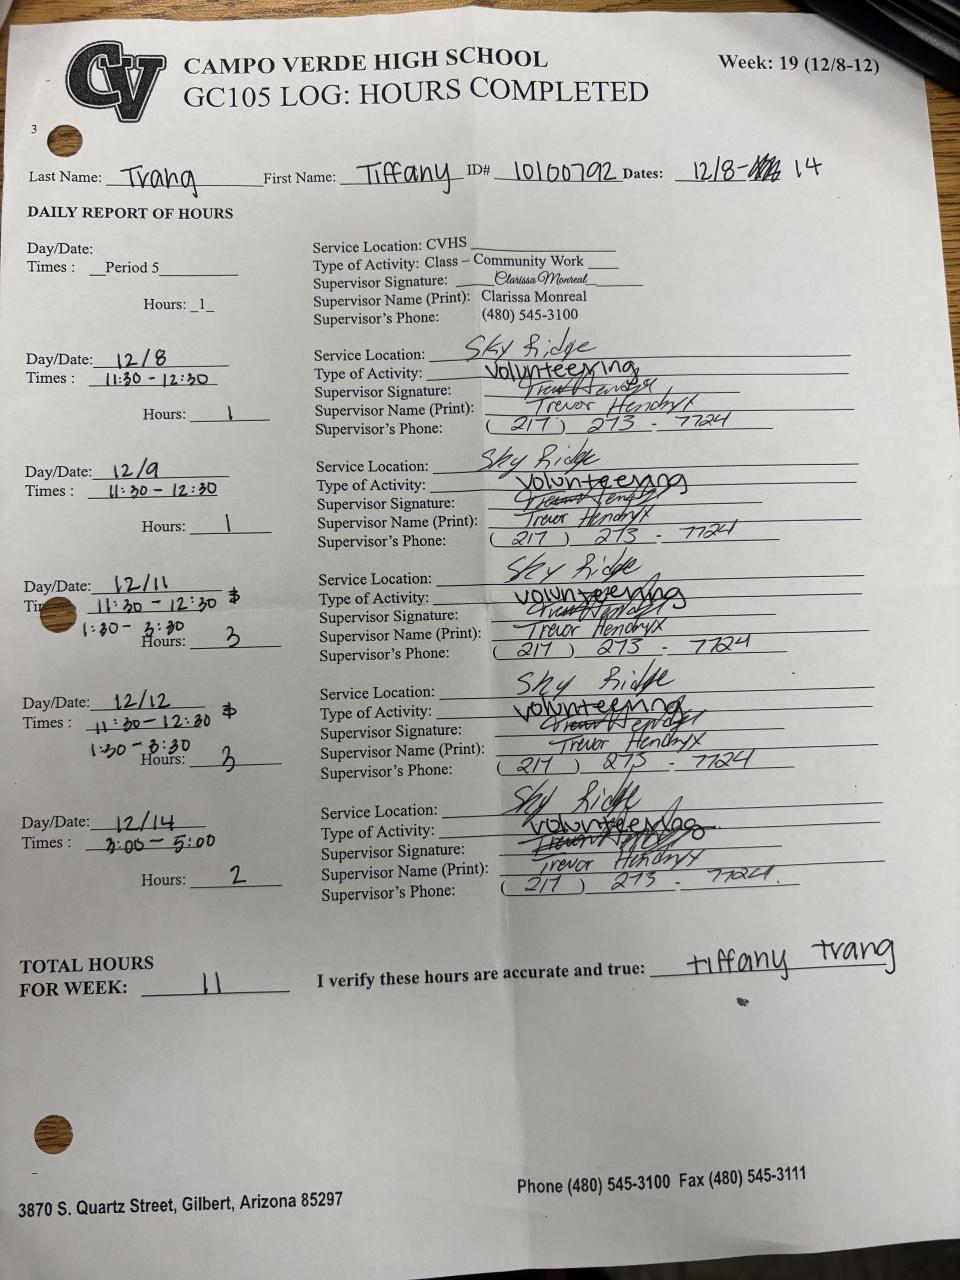 CV
CAMPO VERDE HIGH SCHOOL
Week: 19 (12/8-12)
GC105 LOG: HOURS COMPLETED
3
Last Name: Trang First Name: Tiffany ID# 10100792 Dates: 12/8- 14
DAILY REPORT OF HOURS
Day/Date:
Times : __Period 5
Hours: _1_
Service Location: CVHS
Type of Activity: Class – Community Work
Supervisor Signature: Clarissa Monreal
Supervisor Name (Print): Clarissa Monreal
Supervisor's Phone: (480) 545-3100
Day/Date: 12/8
Times : 11:30 - 12:30
Hours: 1
Service Location: Sky Ridge
Type of Activity: volunteering
Supervisor Signature: Trevor Hendryx
Supervisor Name (Print): Trevor Hendryx
Supervisor's Phone: (217) 273 - 7724
Day/Date: 12/9
Times : 11:30 - 12:30
Hours: 1
Service Location: Sky Ridge
Type of Activity: volunteering
Supervisor Signature: Trevor Hendryx
Supervisor Name (Print): Trevor Hendryx
Supervisor's Phone: (217) 273 - 7724
Day/Date: 12/11
11:30 - 12:30 &
1:30 - 3:30
Hours: 3
Service Location: Sky Ridge
Type of Activity: volunteering
Supervisor Signature: Trevor Hendryx
Supervisor Name (Print): Trevor Hendryx
Supervisor's Phone: (217) 273 - 7724
Day/Date: 12/12
Times : 11:30 - 12:30 &
1:30 - 3:30
Hours: 3
Service Location: Sky Ridge
Type of Activity: volunteering
Supervisor Signature: Trevor Hendryx
Supervisor Name (Print): Trevor Hendryx
Supervisor's Phone: (217) 273 - 7724
Day/Date: 12/14
Times : 3:00 - 5:00
Hours: 2
Service Location: Sky Ridge
Type of Activity: volunteering
Supervisor Signature: Trevor Hendryx
Supervisor Name (Print): Trevor Hendryx
Supervisor's Phone: (217) 273 - 7724
TOTAL HOURS
FOR WEEK: 11
I verify these hours are accurate and true: tiffany trang
3870 S. Quartz Street, Gilbert, Arizona 85297
Phone (480) 545-3100 Fax (480) 545-3111